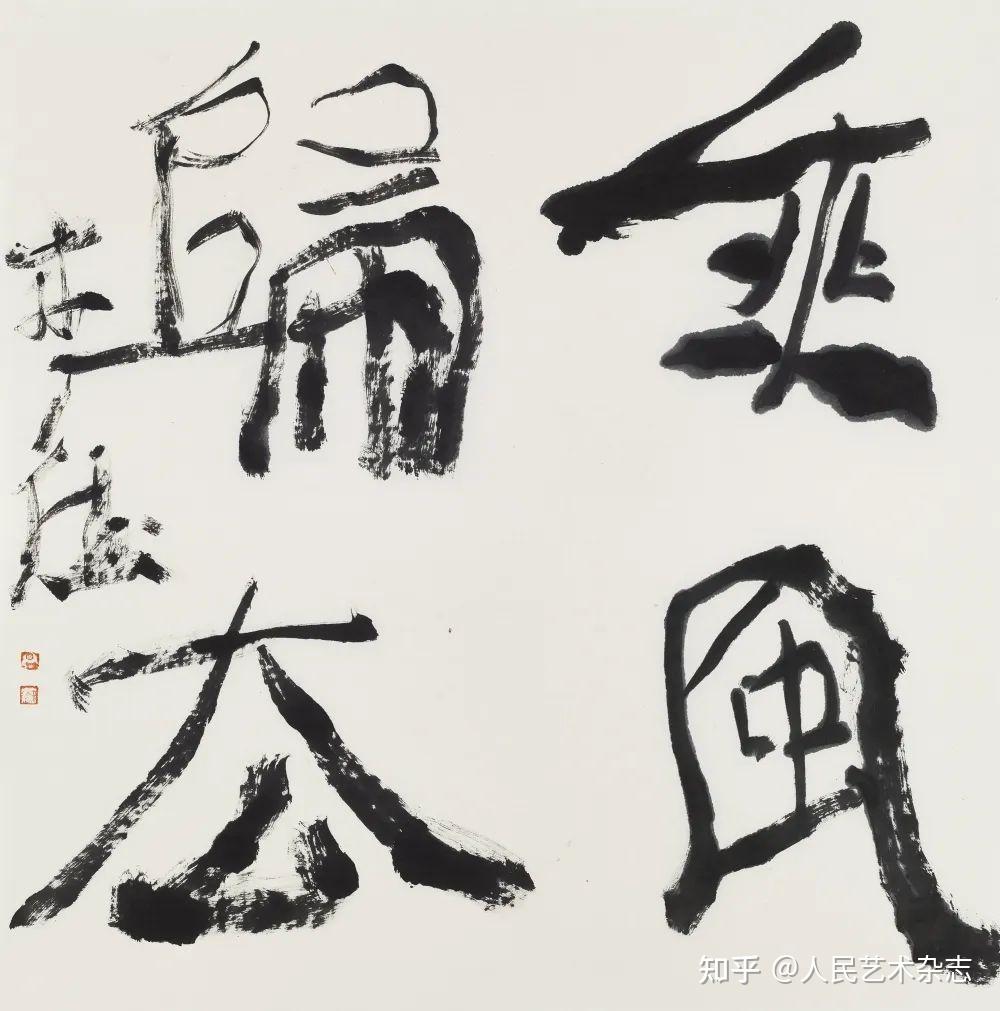 乘風
歸去
知乎 @人民艺术杂志